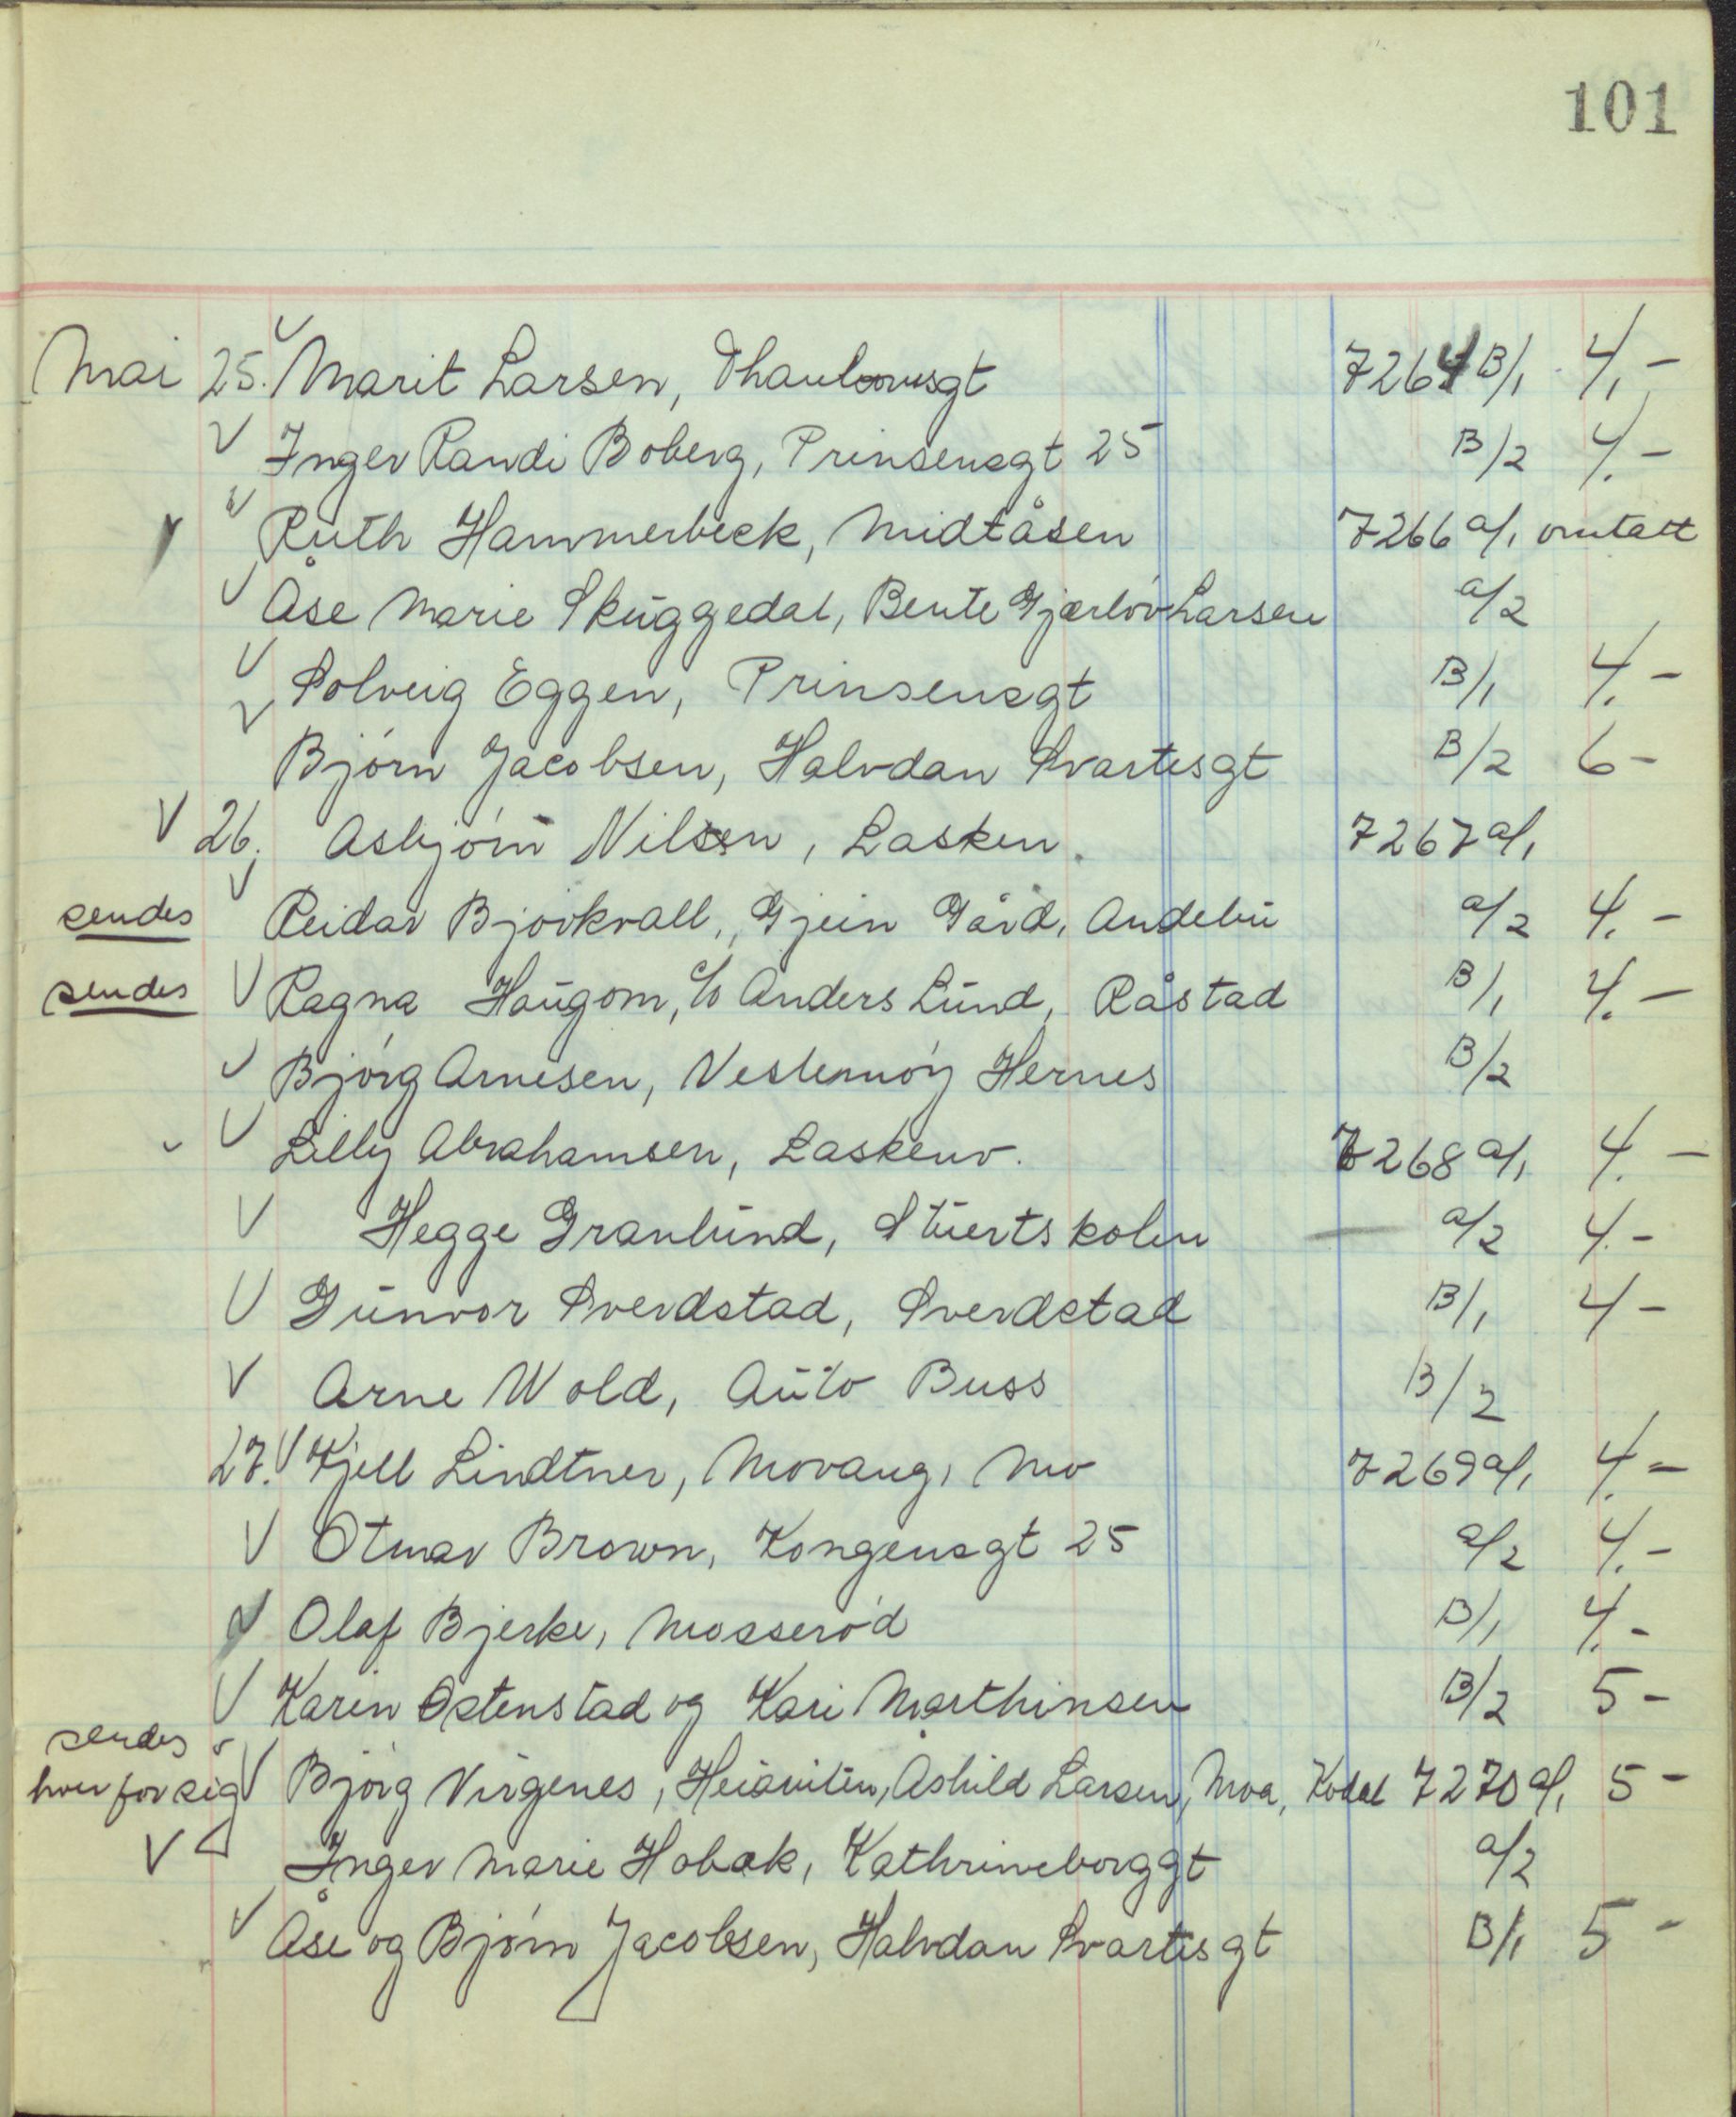 101
Mai 25. Marit Larsen, Thaulowsgt 7264 B/1 4,-
Inger Randi Boberg, Prinsensgt 25 B/2 4.-
Ruth Hammerbeck, Midtåsen 7266 a/1 omtatt
Åse Marie Skuggedal, Bente Gjærløv Larsen a/2
Solveig Eggen, Prinsensgt B/1 4.-
Bjørn Jacobsen, Halvdan Svartesgt B/2 6-
26. Asbjørn Nilsen, Lasken. 7267 a/1
sendes Reidar Bjørkvall, Gjein Gård, Andebu a/2 4.-
sendes Ragna Haugom, c/o Anders Lund, Råstad B/1 4.-
Bjørg Arnesen, Veslemøy Hernes B/2
Lilly Abrahamsen, Laskenv. 7268 a/1 4.-
Hegge Granlund, Stuertskolen a/2 4.-
Gunvor Sverdstad, Sverdstad B/1 4-
Arne Wold, Auto Buss B/2
27. Kjell Lindtner, Movang, Mo 7269 a/1 4.-
Otmar Brown, Kongensgt 25 a/2 4.-
Olaf Bjerke, Mosserød B/1 4.-
Karin Østenstad og Kari Marthinsen B/2 5-
sendes
hver for sig Bjørg Virgenes, Åshild Larsen, Moa, Kodal 7270 a/1 5-
Inger Marie Hobæk, Kathrineborggt a/2
Åse og Bjørn Jacobsen, Halvdan Svartesgt B/1 5-